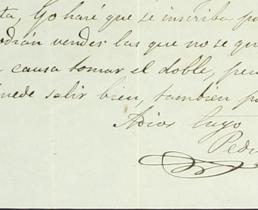 ta, yo haré que se inscriba
odrán vender las que no se
causa tomar el doble,
uede salir bien, tambien
Adios tuyo
Pedr